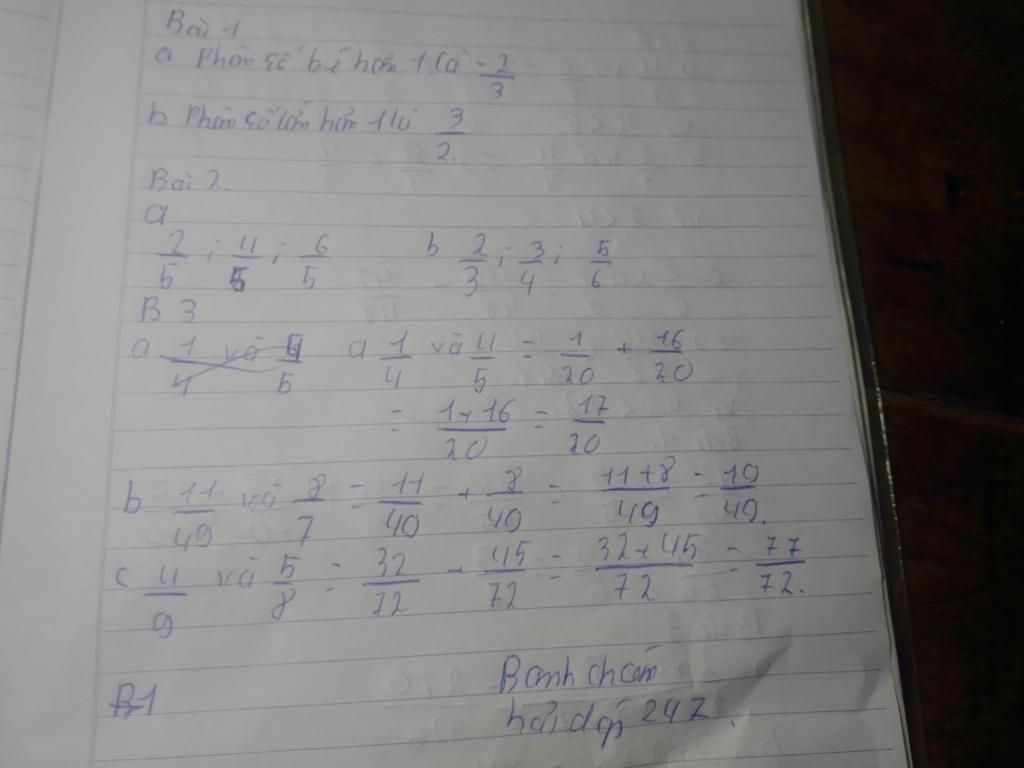 Bài 1
a Phân số bé hơn 1 là 2/3
b Phân số lớn hơn 1 là 3/2.
Bài 2.
a
2/5 ; 4/5 ; 6/5 b 2/3 ; 3/4 ; 5/6
B 3
a 1/4 và 4/5 a 1/4 và 4/5 = 1/20 + 16/20
= 1+16/20 = 17/20
b 11/49 và 8/7 = 11/49 + 8/49 = 11+8/49 = 19/49.
c 4/9 và 5/8 = 32/72 + 45/72 = 32+45/72 = 77/72.
B1
hỏi đáp 247.